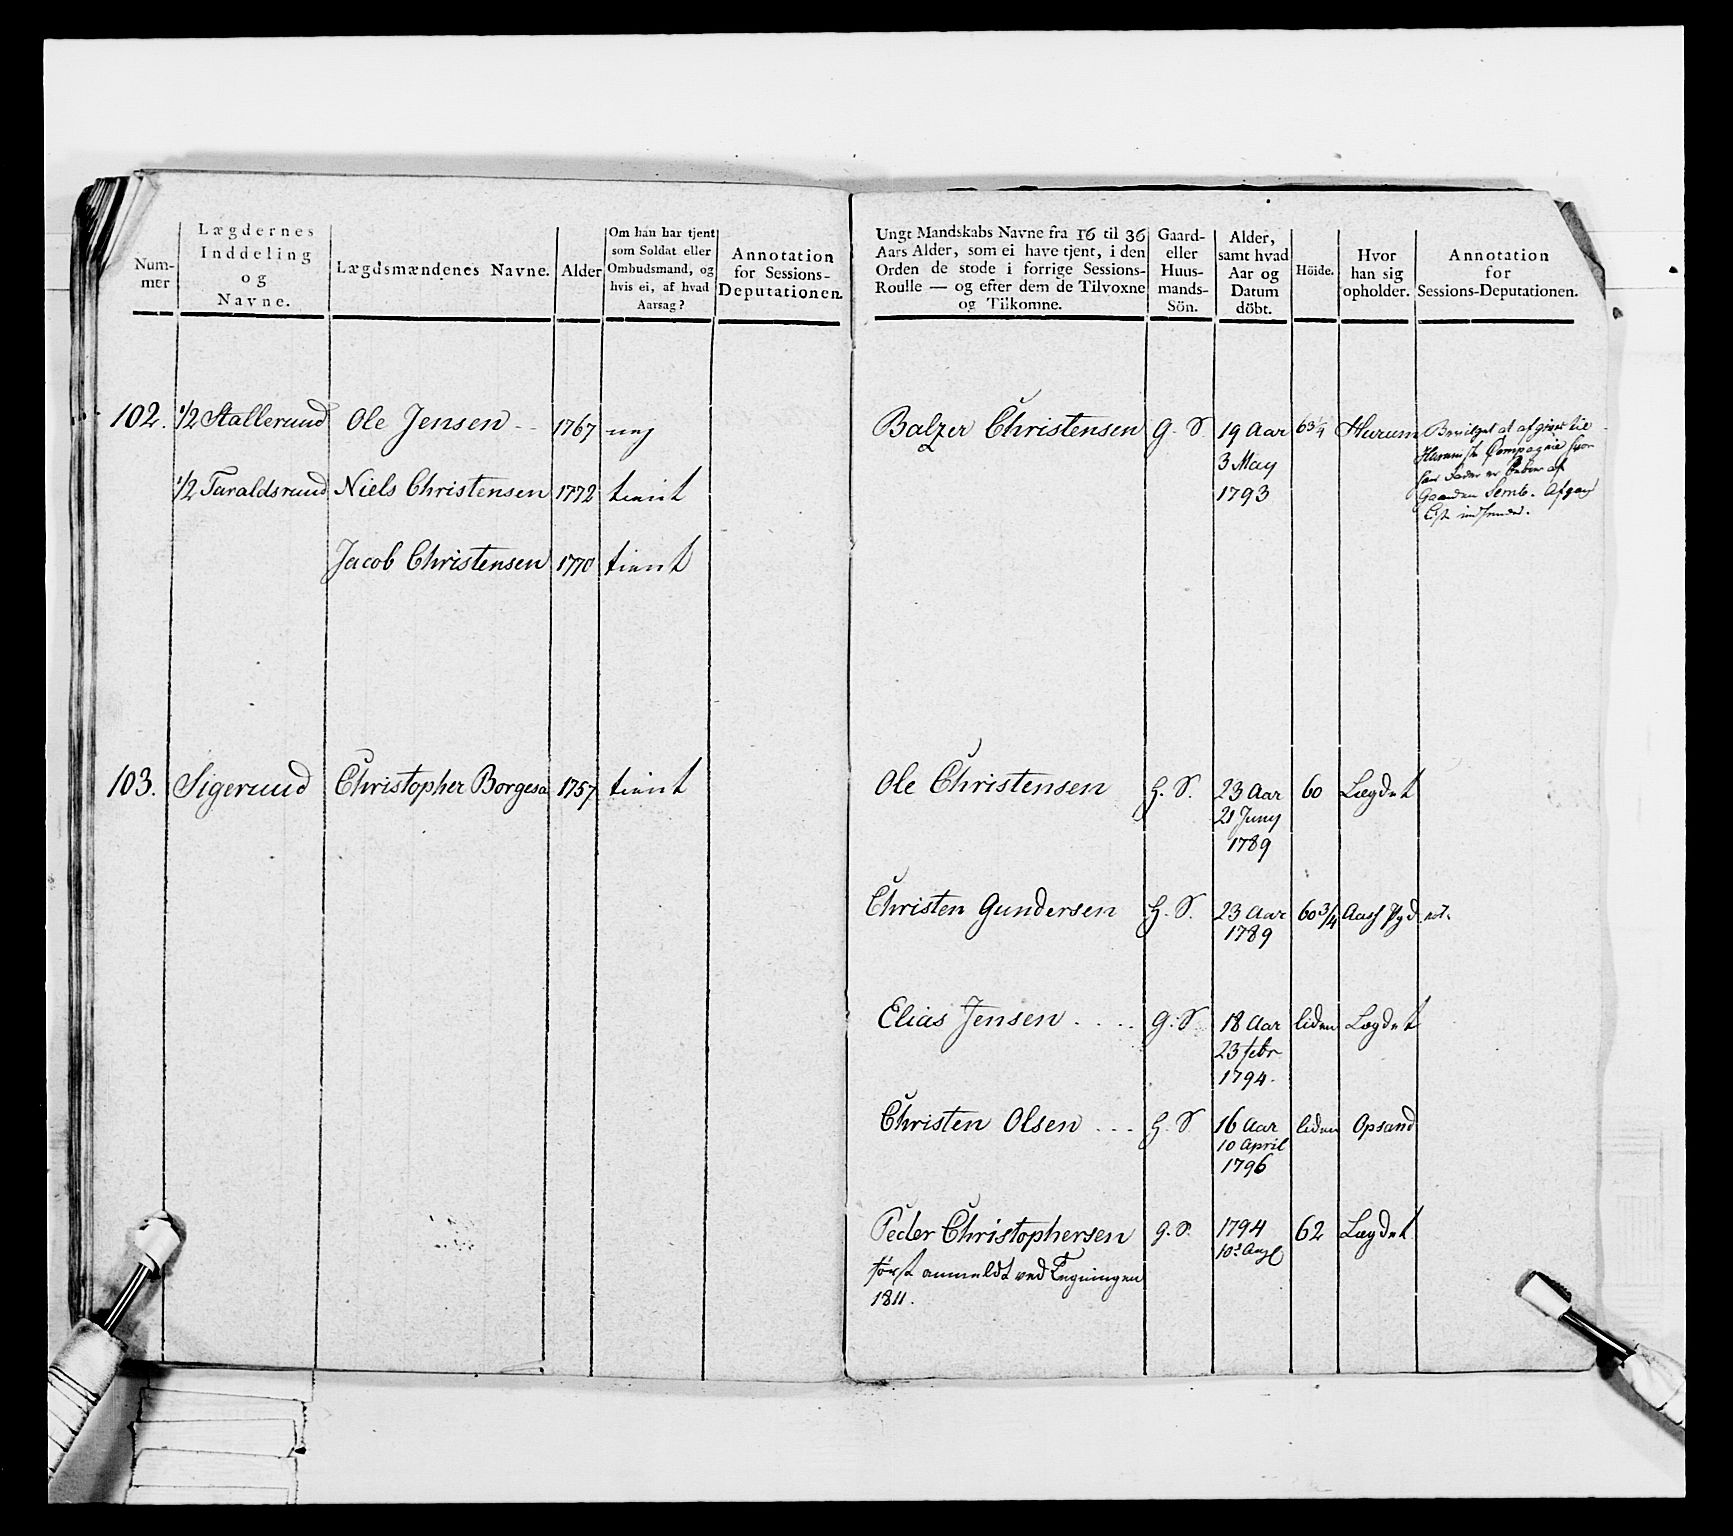 Num-
mer
Lægdernes
Inddeling
og
Navne.
Lægdsmændenes Navne.
Alder
Om han har tjent
som Soldat eller
Ombudsmand, og
hvis ei, af hvad
Aarsag?
Annotation
for Sessions-
Deputationen.
102. 1/2 Stallerund Ole Jensen 1767 ney
1/2 Taraldsrund Niels Christensen 1772 tient
Jacob Christensen 1770 tient
103. Sigerund Christopher Borgesa 1757 tient
Ungt Mandskabs Navne fra 16 til 36
Aars Alder, som ei have tjent, i den
Orden de stode i forrige Sessions-
Roulle — og efter dem de Tilvoxne
og Tilkomne.
Gaard-
eller
Huus-
mands-
Sön.
Alder,
samt hvad
Aar og
Datum
döbt.
Höide.
Hvor
han sig
opholder.
Annotation
for
Sessions-Deputationen.
Balzer Christensen G. S 19 Aar 63 1/4 Hurum
3 May
1793
Bevilget at afgives til
Compagnie hvor
han Fader er af
Gaarden Semb.
Ole Christensen H. S. 23 Aar 60 Lægdet
21 Juny
1789
Christen Gundersen H. S. 23 Aar 60 3/4
1789
Elias Jensen . . . . G. S 18 Aar liden Lægdet
23 febr
1794.
Christen Olsen . . . H. S 16 Aar liden Opsand
10 April
1796
Peder Christophersen g. S. 1794 62 Lægdet
först anmeldt ved Tegningen
1811.